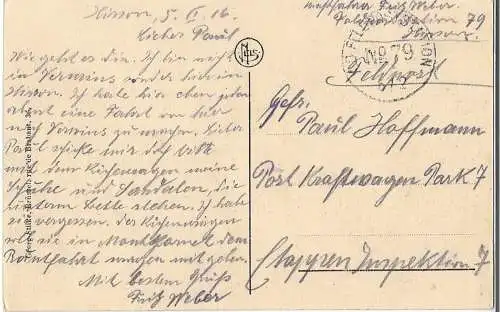 Hirson, 5. II. 16.
Lieber Paul
Wie geht es Dir. Ich bin nicht
in Vervins sonder hier in
Hirson. Ich habe hier eben jeden
eine Fahrt von hier
nach Vervins zu machen. Lieber
Paul schicke mir doch bitte
mit dem Küchenwagen meine
Schuhe und Sandalen, die
hinterm Bette stehen. Ich habe
sie vergessen. Der Küchenwagen
soll sie in Montkornet dem
mitgeben.
Mit bestem Gruß
Fritz Weber
NELS
Fritz Weber
Feldpoststation 79
Hirson.
No 79
Feldpost
Gefr.
Paul Hoffmann
Post Kraftwagen Park 7
Etappen Inspektion 7